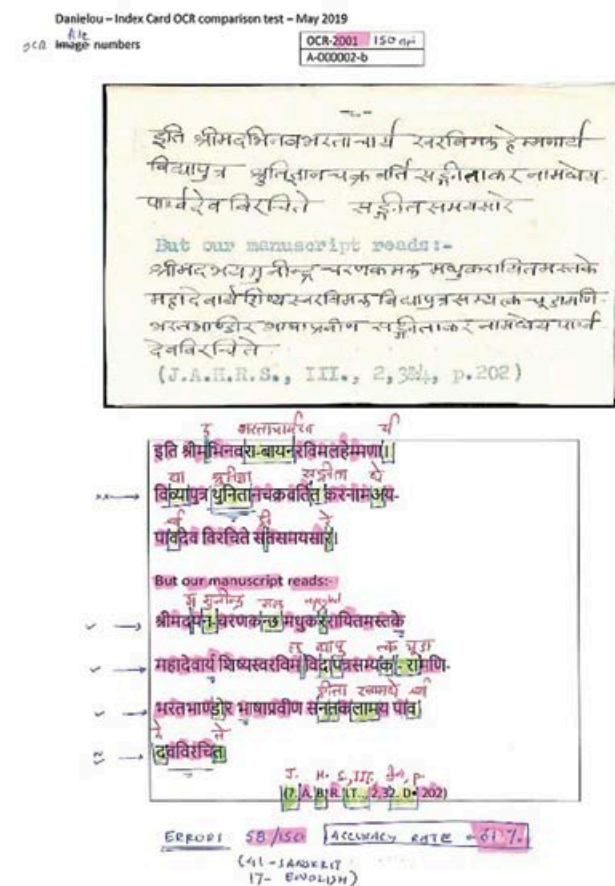 Danielou – Index Card OCR comparison test – May 2019
OCR file image numbers
OCR-2001 150 dpi
A-000002-b
इति श्रीमदभिनवभरताचार्य स्वरविमल हेम्मणार्य
विद्यापुत्र श्रुतिज्ञानचक्रवर्ति सङ्गीताकर नामधेय-
पार्श्वदेव विरचिते सङ्गीतसमयसारे
But our manuscript reads:-
श्रीमदभयमुनीन्द्र चरणकमल मधुकरायितमस्तके
महादेवार्य शिष्यस्वरविमल विद्यापुत्रसम्यत्क चूडामणि-
भरतभाण्डीर भाषाप्रवीण सङ्गीताकर नामधेय पार्श्व
देवविरचिते
(J.A.H.R.S., III., 2, p.202)
द भरताचार्यस्व र्य
इति श्रीमभिनवरा-बायनरविमलहेम्मणा।
द्या श्रुतिज्ञा सङ्गीता धे
विव्यापुत्र थुनितानचक्रवर्तित करनामअय-
पांवदेव विरचिते संतसमयसार।
But our manuscript reads:-
मुनीन्द्र मल
श्रीमदयन-चरणकन्छ मधुकररायितमस्तके
ल द्यापु त्क चूडा
महादेवार्य शिष्यस्वरविम विदापत्रसम्यक - रामणि-
ङ्गीता र्श्व
भरतभाण्डोर भाषाप्रवीण संनतकलामय पांव
दे ते
दवविरचित
J. H. S., III. p.
(7. A. B. R. (T.., 2,32. D• 202)
ERRORS 58/150 ACCURACY RATE = 61%
(41 - SANSKRIT
17 - ENGLISH)